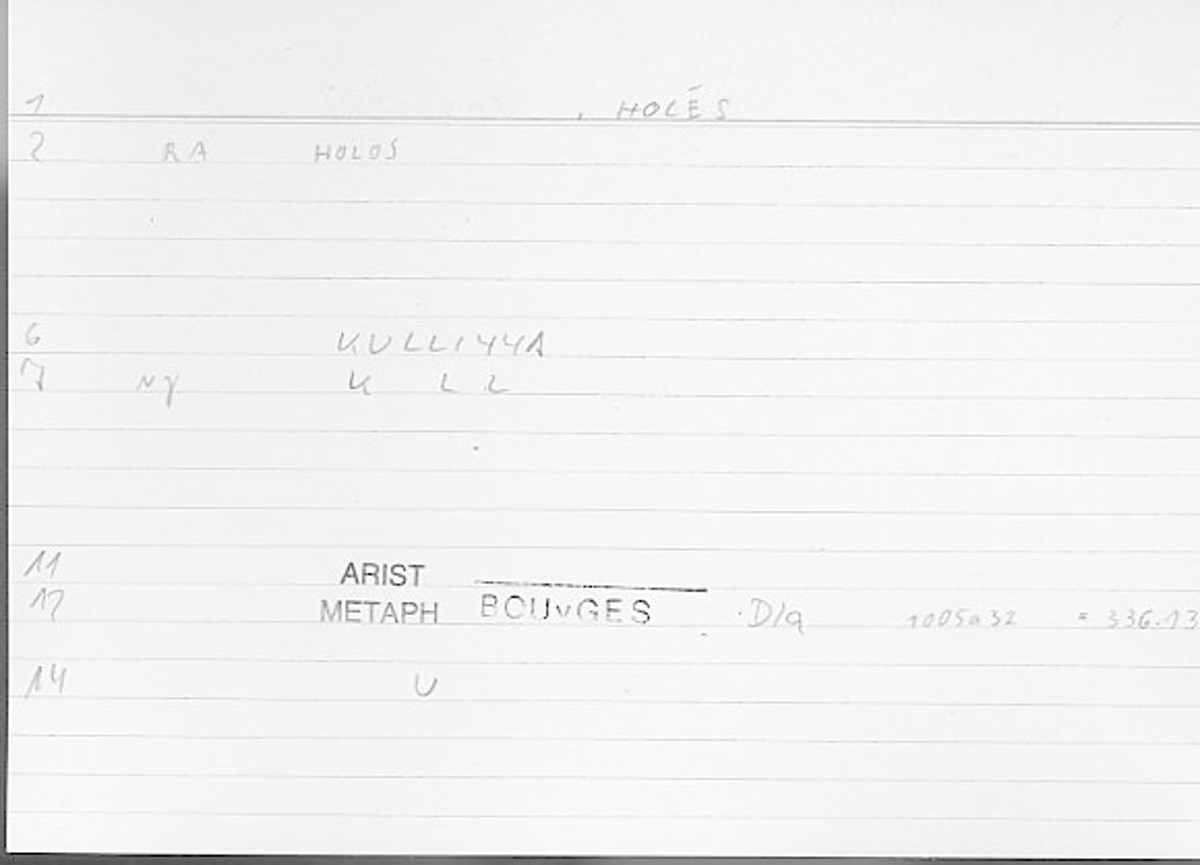 1 . HOLĒS
2 RA HOLOS
6 KULLIYYA
7 NY K L L
11 ARIST
12 METAPH BOUYGES D/q 1005a32 = 336.13
14 U